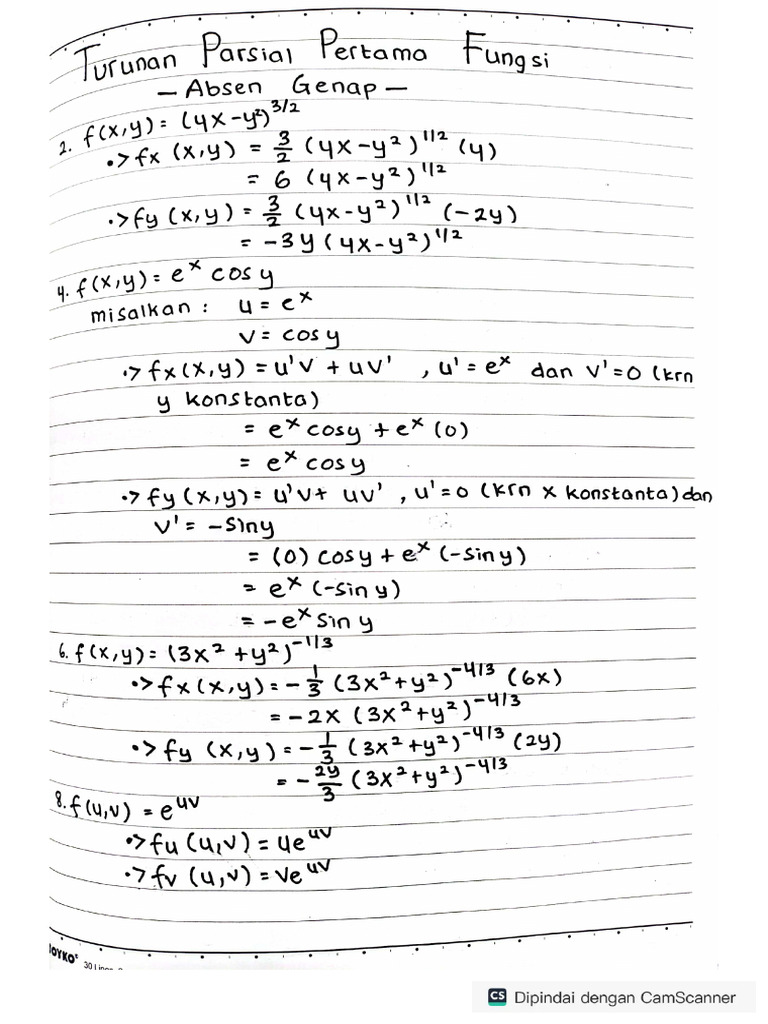 Turunan Parsial Pertama Fungsi
— Absen Genap —
2. f(x,y) = (4x-y²)^3/2
•> fx (x,y) = 3/2 (4x-y²)^1/2 (4)
= 6 (4x-y²)^1/2
•> fy (x,y) = 3/2 (4x-y²)^1/2 (-2y)
= -3y (4x-y²)^1/2
4. f(x,y) = e^x cos y
misalkan : u = e^x
v = cos y
•> fx(x,y) = u'v + uv' , u' = e^x dan v'=0 (krn
y konstanta)
= e^x cos y + e^x (0)
= e^x cos y
•> fy (x,y) = u'v + uv' , u'=0 (krn x konstanta) dan
v' = -sin y
= (0) cos y + e^x (-sin y)
= e^x (-sin y)
= -e^x sin y
6. f(x,y) = (3x² + y²)^-1/3
•> fx(x,y) = -1/3 (3x²+y²)^-4/3 (6x)
= -2x (3x²+y²)^-4/3
•> fy (x,y) = -1/3 (3x²+y²)^-4/3 (2y)
= -2y/3 (3x²+y²)^-4/3
8. f(u,v) = e^uv
•> fu (u,v) = ue^uv
•> fv (u,v) = ve^uv
OYKO
30 Lines
CS Dipindai dengan CamScanner